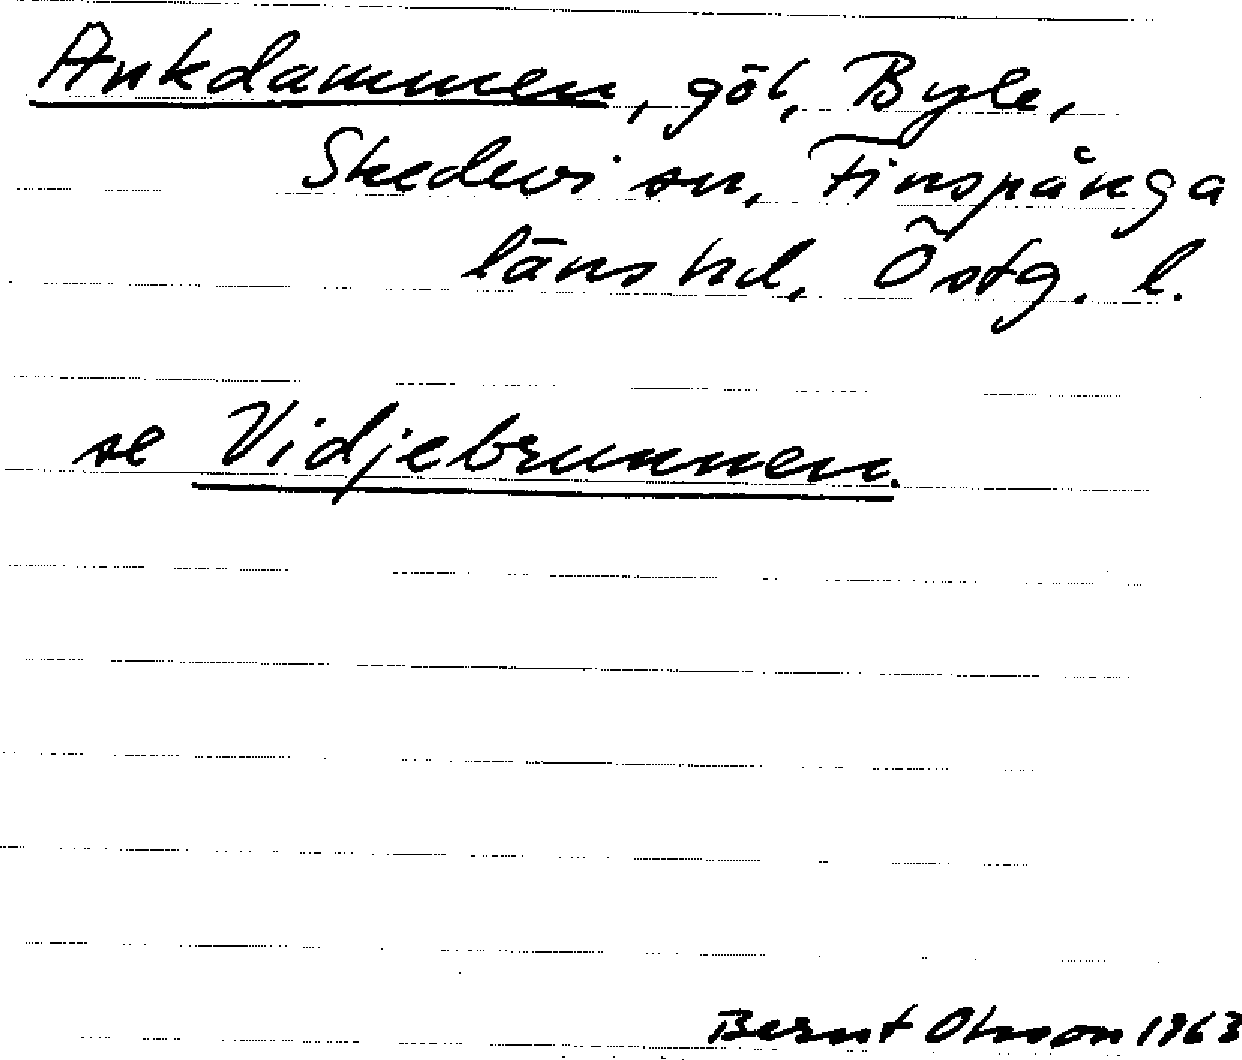 Ankdammen, göl, Byle,
Skedevi sn, Finspånga
läns hd, Östg. l.
se Vidjebrunnen.
Bernt Olsson 1963